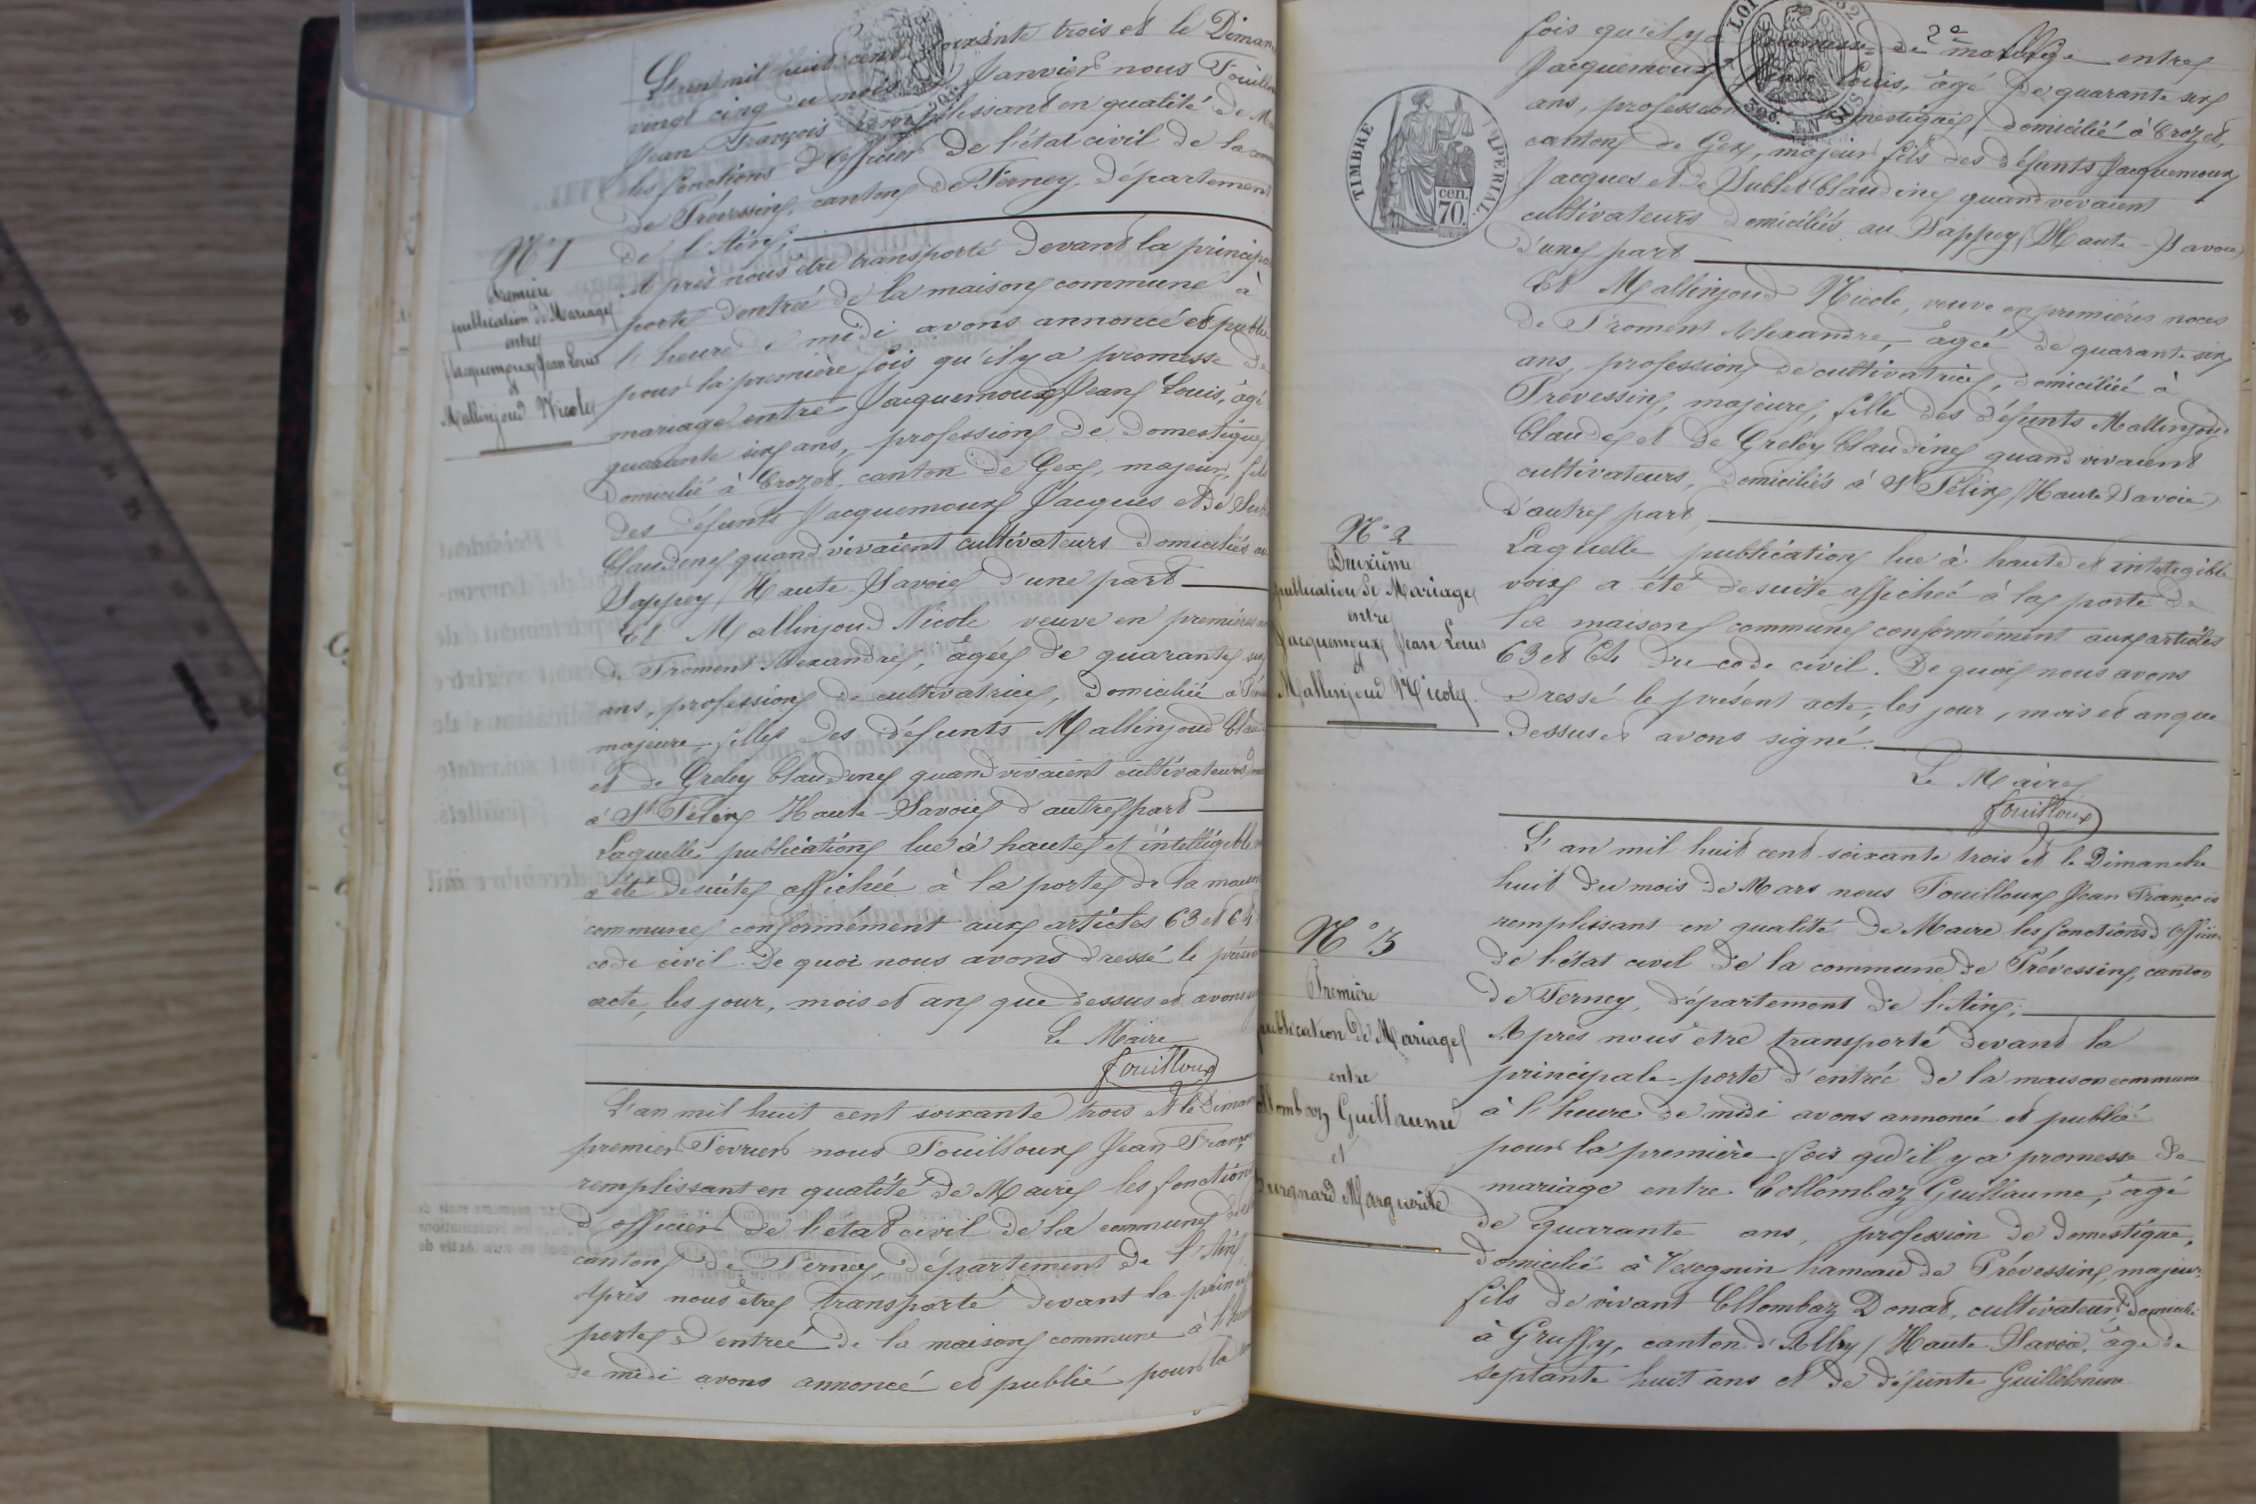 L'an mil huit cent soixante trois et le Diman
vingt cinq du mois Janvier nous Fouillou
Jean François remplissant en qualité de M
les fonctions d'officier de l'état civil de la
de Prévessin, canton de Ferney, département
de l'Ain;
N° 1
Première
publication de Mariage
entre
Jacquemoux Jean Louis
et
Mallinjoud Nicole
Après nous être transporté devant la princip
porte d'entrée de la maison commune à
l'heure de midi, avons annoncé et publié
pour la première fois qu'il y a promesse de
mariage entre Jacquemoux Jean Louis, âgé
quarante six ans, profession de domestique
domicilié à Crozet, canton de Gex, majeur, fils
des défunts Jacquemoux Jacques et de Sub
Claudine quand vivaient cultivateurs domiciliés au
Sappey (Haute-Savoie) d'une part
Et Mallinjoud Nicole veuve en premières
de Froment Alexandre, âgée de quarante six
ans, profession de cultivatrice, domiciliée à
majeure, fille des défunts Mallinjoud Clau
et de Greley Claudine quand vivaient cultivateurs
à St Félix Haute-Savoie d'autre part
Laquelle publication lue à haute et intelligible
a été de suite affichée à la porte de la maison
commune conformément aux articles 63 et 64
code civil. De quoi nous avons dressé le présent
acte, les jour, mois et an que dessus et avons
Le Maire
Fouilloux
L'an mil huit cent soixante trois et le Diman
premier Février nous Fouilloux Jean Franço
remplissant en qualité de Maire les fonctions
d'officier de l'état civil de la commune de
canton de Ferney département de l'Ain
Après nous être transporté devant la princi
porte d'entrée de la maison commune à l'heu
de midi avons annoncé et publié pour la
fois qu'il y a promesse de 2e mariage entre
Jacquemoux Jean Louis, âgé de quarante six
ans, profession domestique, domicilié à Crozet,
canton de Gex, majeur fils des défunts Jacquemoux
Jacques et de Sublet Claudine quand vivaient
cultivateurs domiciliés au Sappey (Haute-Savoie)
d'une part
TIMBRE IMPERIAL
cen.
70.
Et Mallinjoud Nicole, veuve en premières noces
de Froment Alexandre, âgée de quarante six
ans, profession de cultivatrice, domiciliée à
Prévessin, majeure, fille des défunts Mallinjoud
Claude et de Greley Claudine quand vivaient
cultivateurs, domiciliés à St Félix (Haute Savoie)
d'autre part
N° 2
Deuxième
publication de Mariage
entre
Jacquemoux Jean Louis
et
Mallinjoud Nicole
Laquelle publication lue à haute et intelligible
voix a été de suite affichée à la porte de
la maison commune conformément aux articles
63 et 64 du code civil. De quoi nous avons
dressé le présent acte, les jour, mois et an que
dessus et avons signé.
Le Maire
Fouilloux
L'an mil huit cent soixante trois et le Dimanche
huit du mois de Mars nous Fouilloux Jean François
remplissant en qualité de Maire les fonctions d'officier
de l'état civil de la commune de Prévessin, canton
de Ferney, département de l'Ain;
N° 3
Première
publication de Mariage
entre
Collombaz Guillaume
et
Marguerite
Après nous être transporté devant la
principale porte d'entrée de la maison commune
à l'heure de midi avons annoncé et publié
pour la première fois qu'il y a promesse de
mariage entre Collombaz Guillaume, âgé
de quarante ans, profession de domestique,
domicilié à Vesegnin hameau de Prévessin, majeur
fils de vivant Collombaz Donat, cultivateur, domicilié
à Gruffy, canton d'Alby (Haute Savoie, âgé de
septante huit ans et de défunte Guillelmine